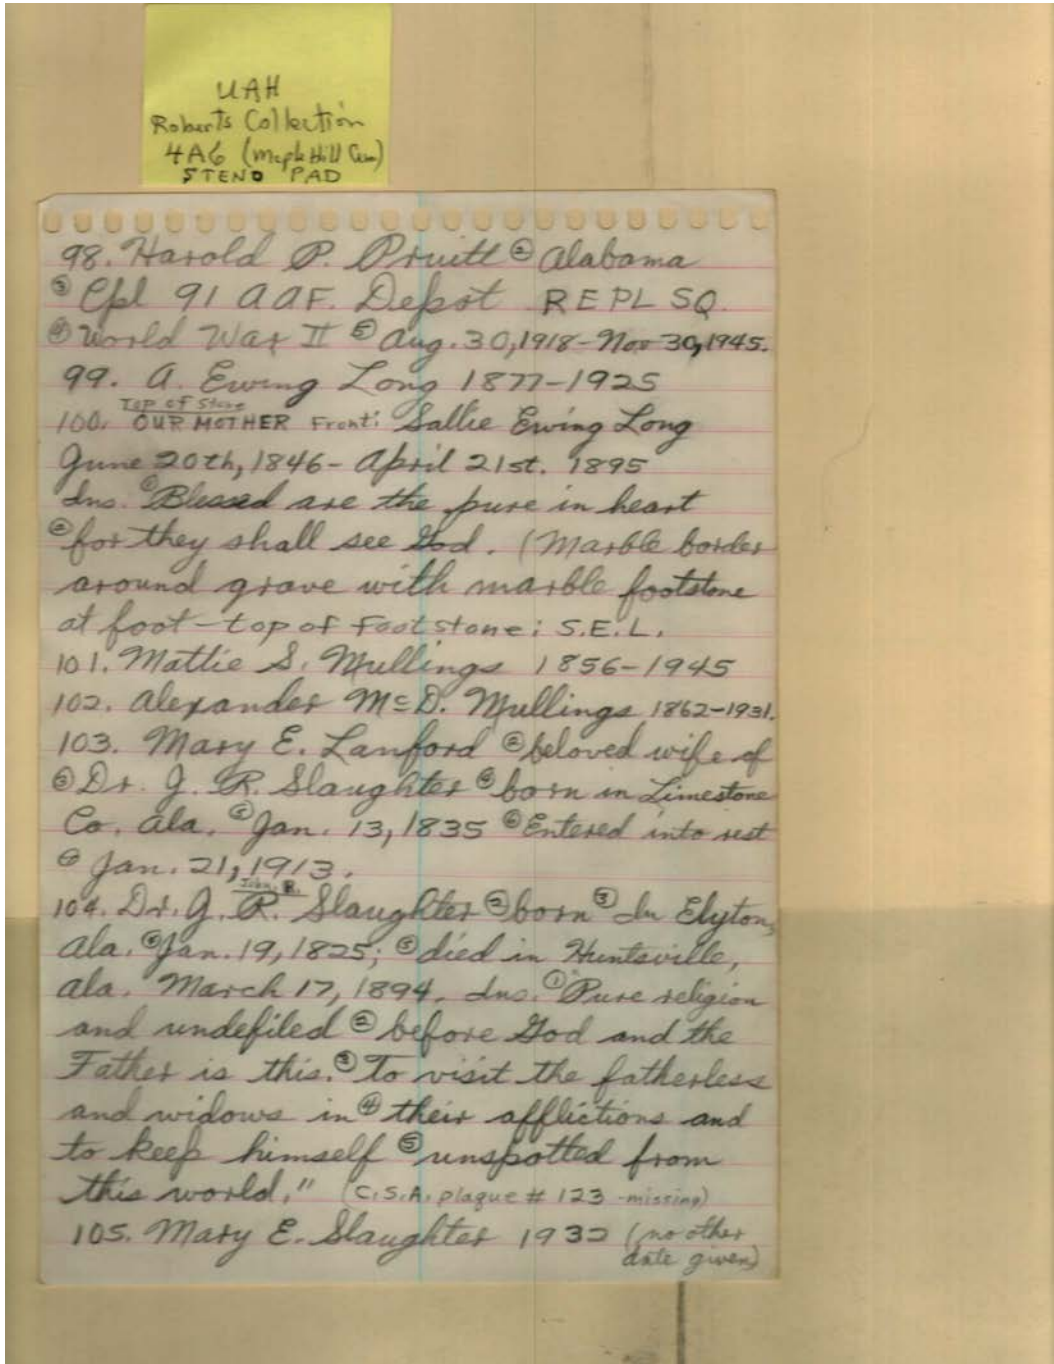 UAH
Roberts Collection
4A6 (Maple Hill Cem)
STENO PAD
98. Harold P. Pruitt ② Alabama
③ Cpl 91 AAF. Depot REPL SQ.
④ World War II ⑤ Aug. 30, 1918 - Nov 30, 1945.
99. A. Ewing Long 1877-1925
Top of Stone
100. OUR MOTHER Front: Sallie Ewing Long
June 20th, 1846 - April 21st. 1895
Ins. ①Blessed are the pure in heart
② for they shall see God. (Marble border
around grave with marble footstone
at foot - top of Footstone: S.E.L.
101. Mattie S. Mullings 1856-1945
102. Alexander McD. Mullings 1862-1931.
103. Mary E. Lanford ② beloved wife of
③ Dr. J. R. Slaughter ④ born in Limestone
Co. Ala. ⑤ Jan. 13, 1835 ⑥ Entered into rest
⑦ Jan. 21, 1913.
John R.
104. Dr. J. R. Slaughter ② born ③ In Elyton,
Ala. ④ Jan. 19, 1825; ⑤ died in Huntsville,
Ala. March 17, 1894. Ins. ① "Pure religion
and undefiled ② before God and the
Father is this. ③ To visit the fatherless
and widows in ④ their afflictions and
to keep himself ⑤ unspotted from
this world." (C.S.A. plaque # 123 - missing)
105. Mary E. Slaughter 1932 (no other
date given)